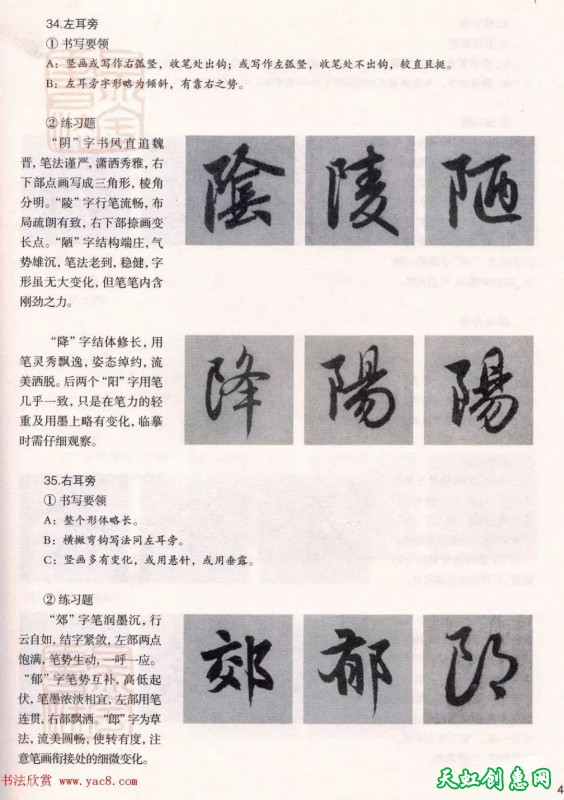 34.左耳旁
① 书写要领
A：竖画或写作右弧竖，收笔处出钩；或写作左弧竖，收笔处不出钩，较直且挺。
B：左耳旁字形略为倾斜，有靠右之势。
② 练习题
“阴”字书风直追魏
晋，笔法谨严，潇洒秀雅，右
下部点画写成三角形，棱角
分明。“陵”字行笔流畅，布
局疏朗有致，右下部捺画变
长点。“陋”字结构端庄，气
势雄沉，笔法老到，稳健，字
形虽无大变化，但笔笔内含
刚劲之力。
陰 陵 陋
“降”字结体修长，用
笔灵秀飘逸，姿态绰约，流
美洒脱。后两个“阳”字用笔
几乎一致，只是在笔力的轻
重及用墨上略有变化，临摹
时需仔细观察。
降 陽 陽
35.右耳旁
① 书写要领
A：整个形体略长。
B：横撇弯钩写法同左耳旁。
C：竖画多有变化，或用悬针，或用垂露。
② 练习题
“郊”字笔润墨沉，行
云自如，结字紧敛，左部两点
饱满，笔势生动，一呼一应。
“郁”字笔势互补，高低起
伏，笔墨浓淡相宜，左部用笔
连贯，右部飘洒。“郎”字为草
法，流美圆畅，使转有度，注
意笔画衔接处的细微变化。
郊 郁 郎
书法欣赏 www.yac8.com
天虹创惠网
4